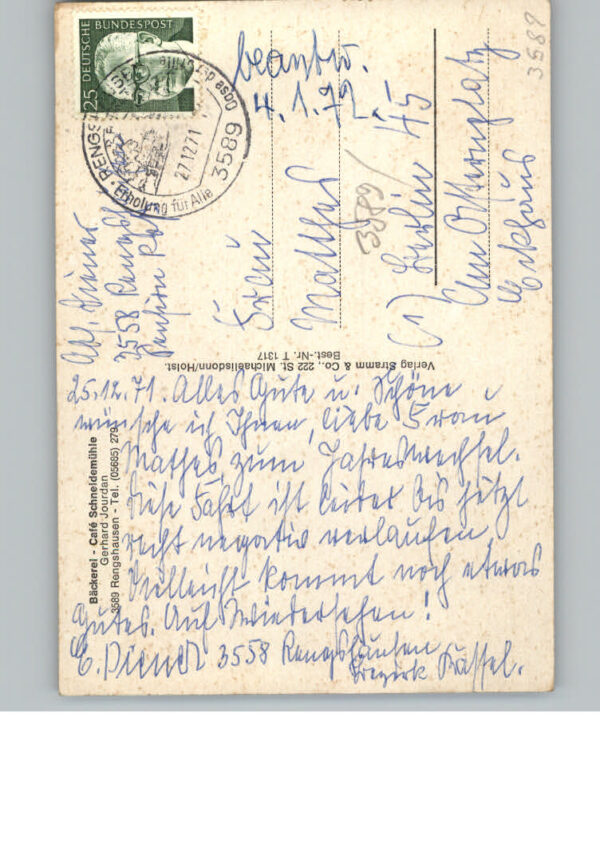 DEUTSCHE BUNDESPOST
25
27.12.71
3589
Erholung für Alle
beantw.
4.1.72
3589
3589
Abs. Diener
3558 Rengsh
Pension
Frau
Matthes
(1) Berlin 45
Am Ostpreußen
Eckhaus
Verlag Stramm & Co., 222 St. Michaelisdonn/Holst.
Best.-Nr. T 1317
Bäckerei - Café Schneidemühle
Gerhard Jourdan
3589 Rengshausen - Tel. (05685) 279
25.12.71. Alles Gute u. Schöne
wünsche ich Ihnen, liebe Frau
Mathes, zum Jahreswechsel.
Diese Fahrt ist leider bis jetzt
recht negativ verlaufen,
Vielleicht kommt noch etwas
Gutes. Auf Wiedersehen!
E. Diener 3558 Rengshausen
Bezirk Kassel.